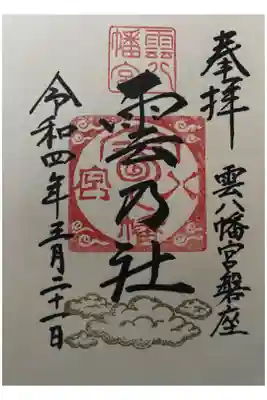 奉拝
雲八幡宮磐座
雲八幡宮
雲乃社
令和四年五月二十一日